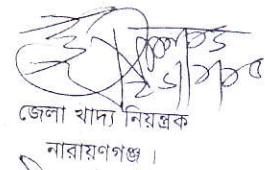 জেলা খাদ্য নিয়ন্ত্রক
নারায়ণগঞ্জ।